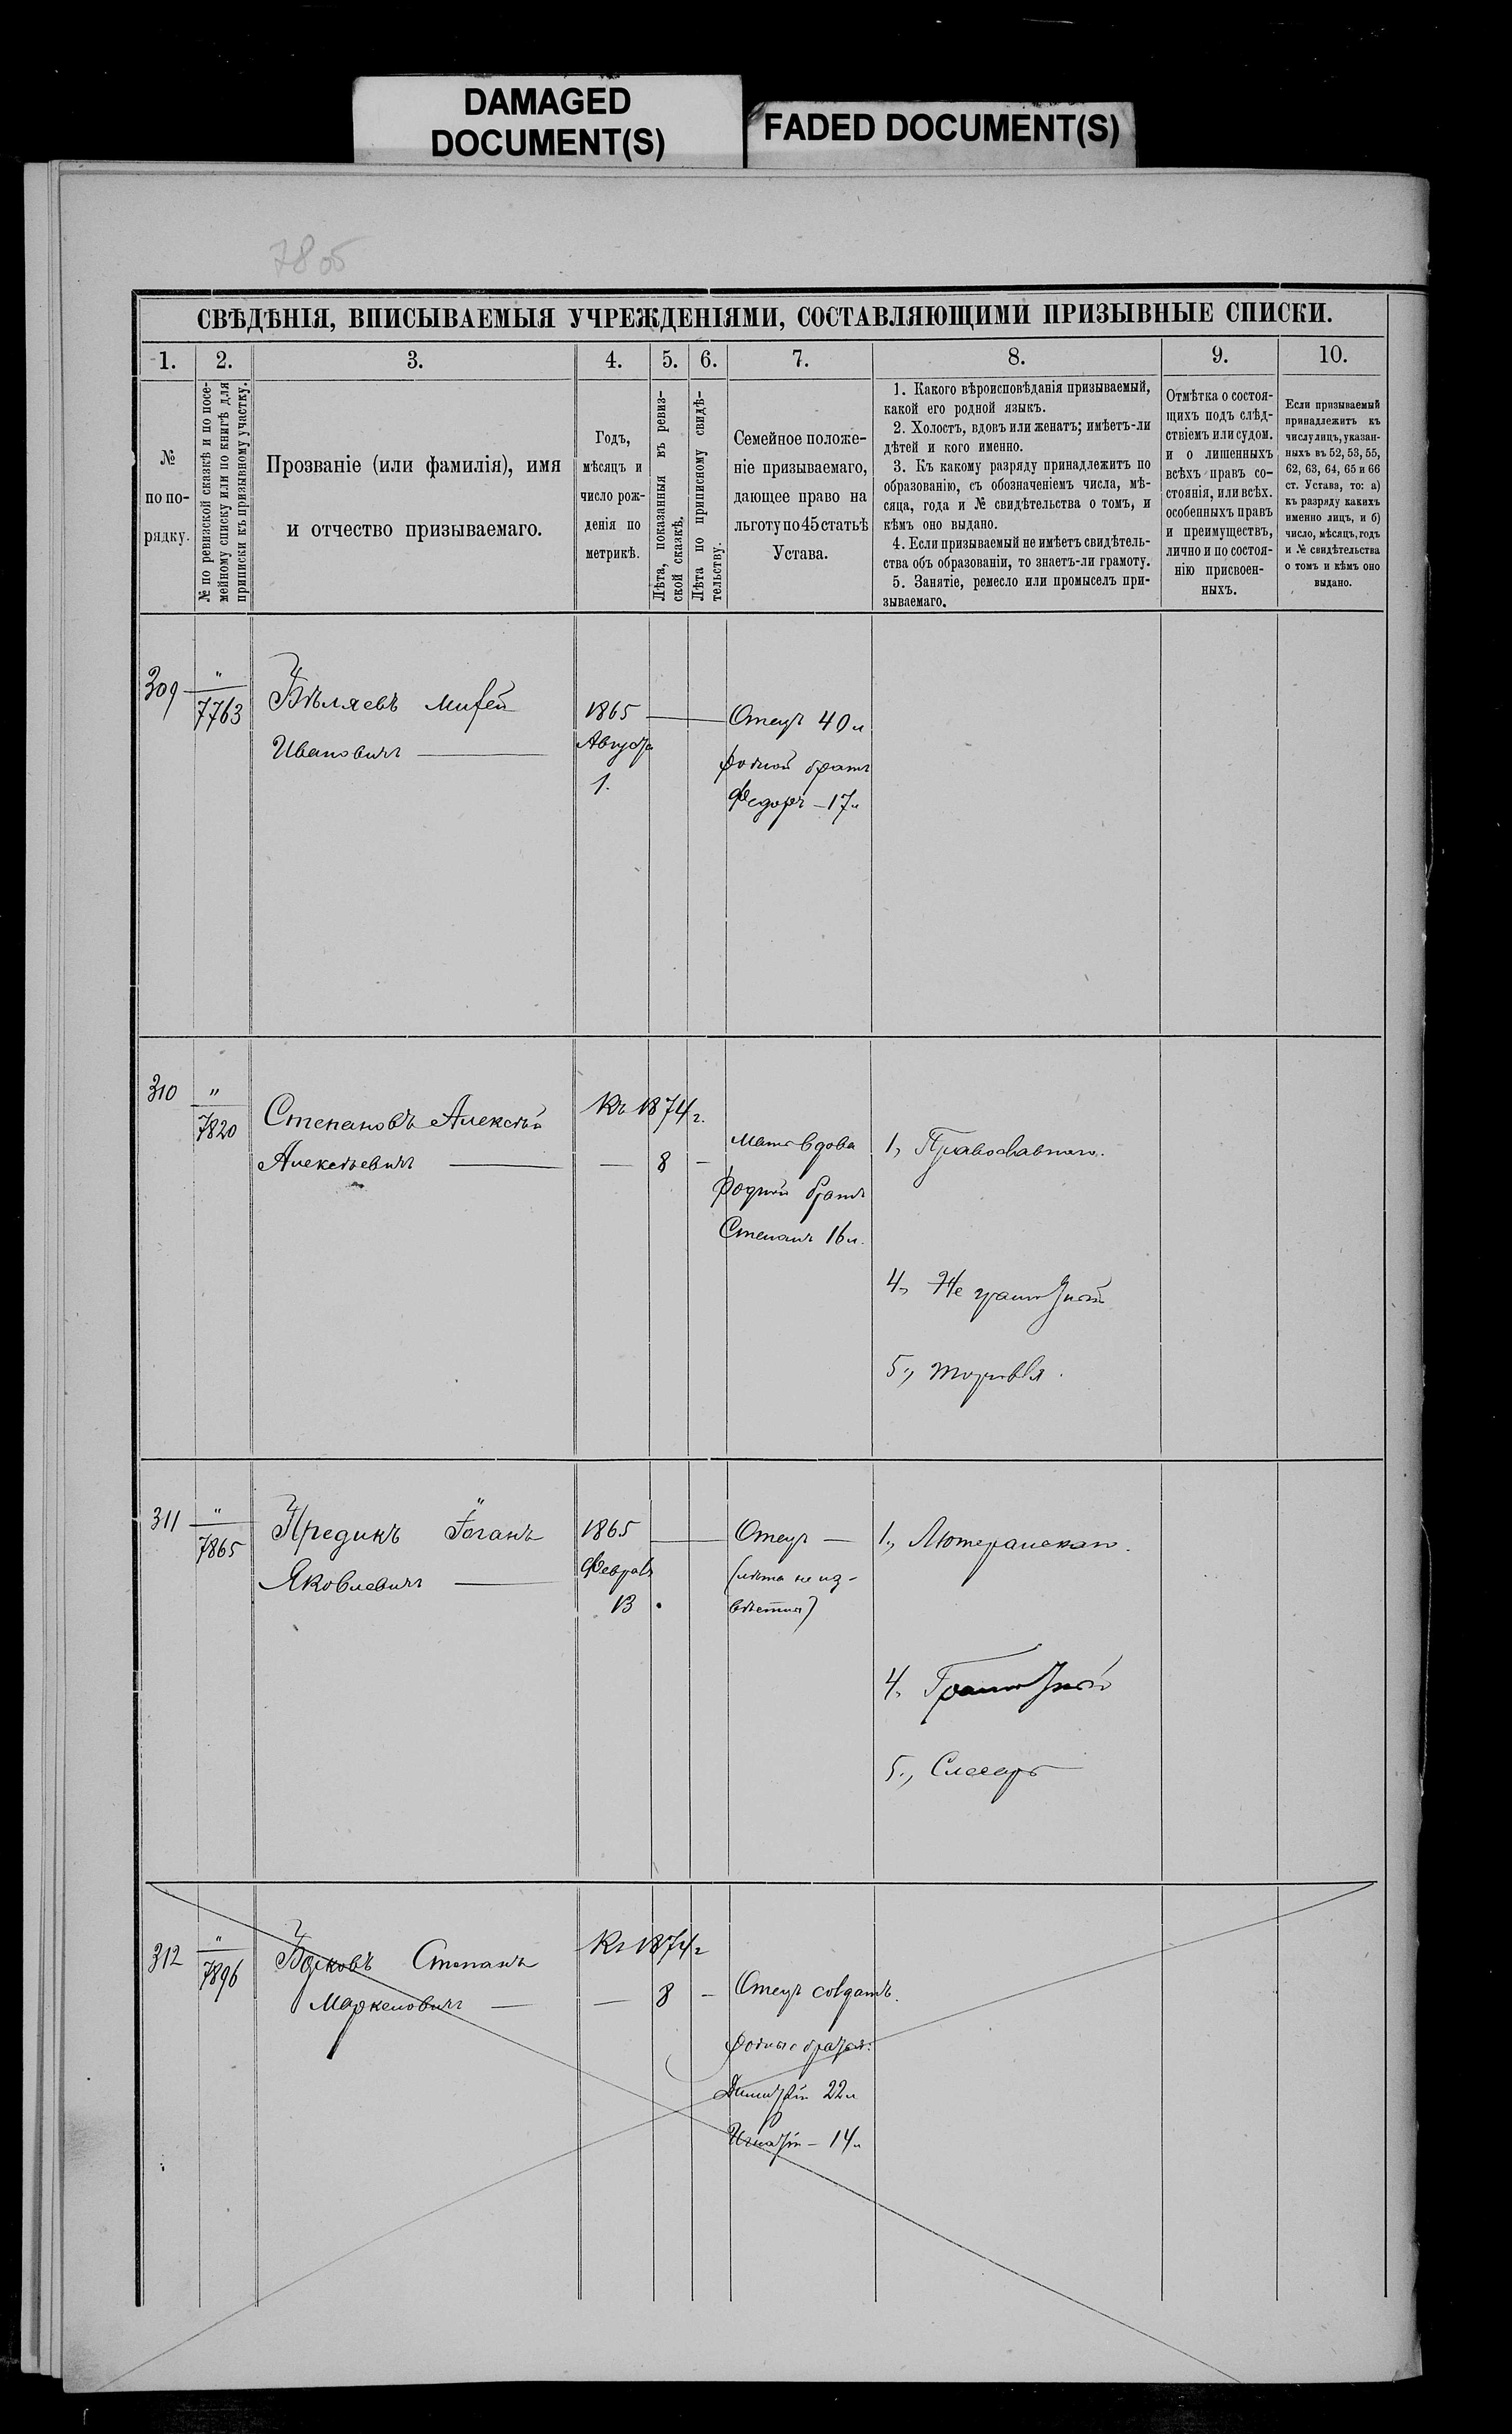 DAMAGED
DOCUMENT(S)
FADED DOCUMENT(S)
7805
СВѢДѢНІЯ, ВПИСЫВАЕМЫЯ УЧРЕЖДЕНІЯМИ, СОСТАВЛЯЮЩИМИ ПРИЗЫВНЫЕ СПИСКИ.
1.
2.
3.
4.
5.
6.
7.
8.
9.
10.
№
по по-
рядку.
№ по ревизской сказкѣ и по посе-
мейному списку или по книгѣ для
приписки къ призывному участку.
Прозваніе (или фамилія), имя
и отчество призываемаго.
Годъ,
мѣсяцъ и
число рож-
денія по
метрикѣ.
Лѣта, показанныя въ ревиз-
ской сказкѣ.
Лѣта по приписному свидѣ-
тельству.
Семейное положе-
ніе призываемаго,
дающее право на
льготу по 45 статьѣ
Устава.
1. Какого вѣроисповѣданія призываемый,
какой его родной языкъ.
2. Холостъ, вдовъ или женатъ; имѣетъ-ли
дѣтей и кого именно.
3. Къ какому разряду принадлежитъ по
образованію, съ обозначеніемъ числа, мѣ-
сяца, года и № свидѣтельства о томъ, и
кѣмъ оно выдано.
4. Если призываемый не имѣетъ свидѣтель-
ства объ образованіи, то знаетъ-ли грамоту.
5. Занятіе, ремесло или промыселъ при-
зываемаго.
Отмѣтка о состоя-
щихъ подъ слѣд-
ствіемъ или судом.
и о лишенныхъ
всѣхъ правъ со-
стоянія, или всѣх.
особенныхъ правъ
и преимуществъ,
лично и по состоя-
нію присвоен-
ныхъ.
Если призываемый
принадлежитъ къ
числу лицъ, указан-
ныхъ въ 52, 53, 55,
62, 63, 64, 65 и 66
ст. Устава, то: а)
къ разряду какихъ
именно лицъ, и б)
число, мѣсяцъ, годъ
и № свидѣтельства
о томъ и кѣмъ оно
выдано.
309
"
7763
Бѣляевъ
Ивановичъ
1865
Августа
1.
Отецъ 40 л
родной братъ
Федоръ - 17 л
310
"
7820
Степановъ Алексѣй
Алексѣевичъ
Къ 1874 г.
— 8 —
Мать вдова
родной братъ
Степанъ 16 л.
1, Православнаго.
4, Не грамотной
5., торговля.
311
"
7865
Предикъ Іоганъ
Яковлевичъ
1865
Февраля
13
Отецъ —
(лѣта не из-
вѣстны)
1., Лютеранскаго.
4. Грамотной
5., Слесарь
312
"
7896
Борковъ Степанъ
Маркеловичъ
Къ 1874 г
— 8 —
Отецъ солдатъ.
родные братья:
Димитрій 22 л
Игнатій - 14 л